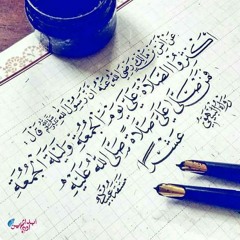 عن أنس بن مالك رضي الله عنه أن رسول الله ﷺ قال:
أكثروا الصلاة علي يوم الجمعة وليلة الجمعة
فمن صلى علي صلاة صلى الله عليه
عشرًا
رواه البيهقي